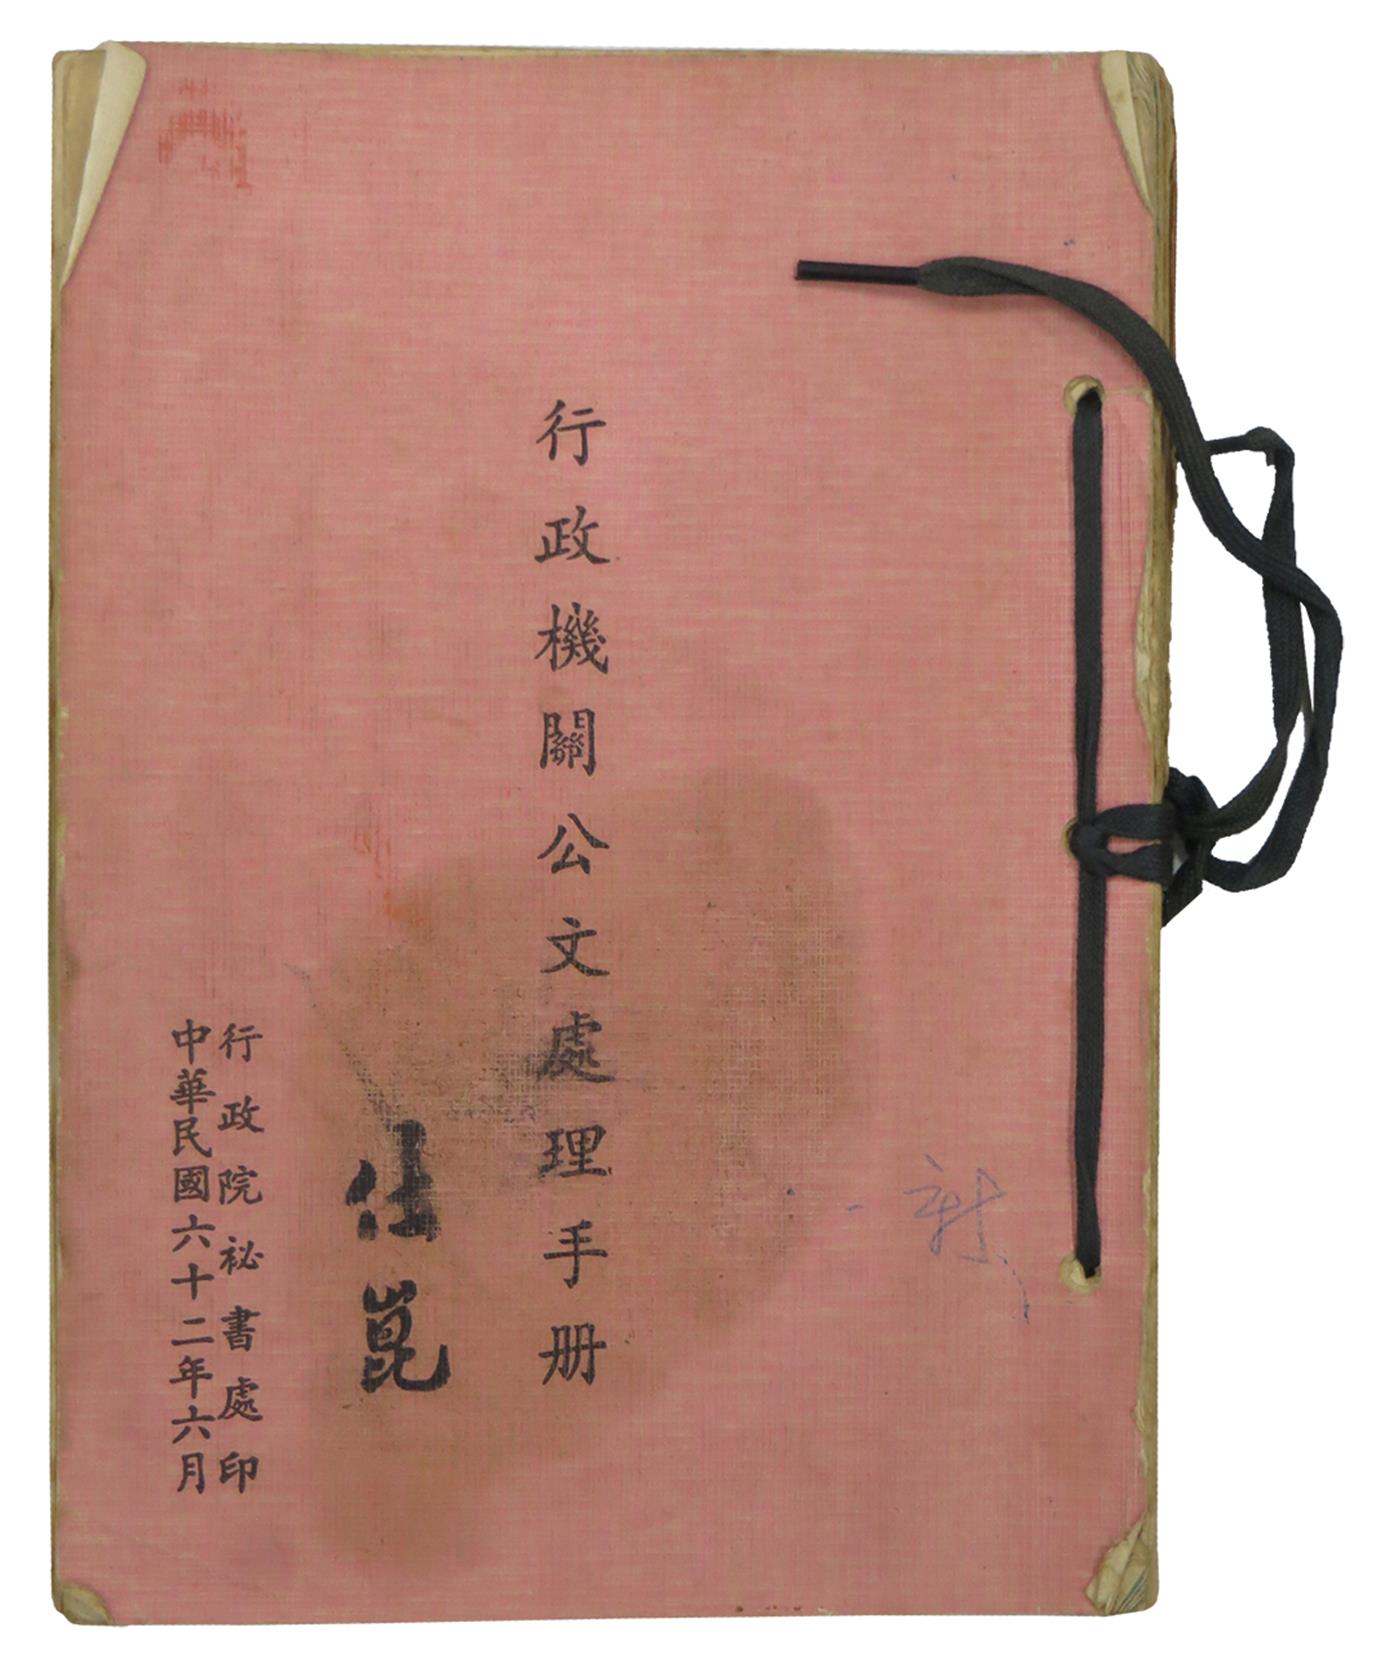 行政機關公文處理手册
仕崑
行政院祕書處印
中華民國六十二年六月